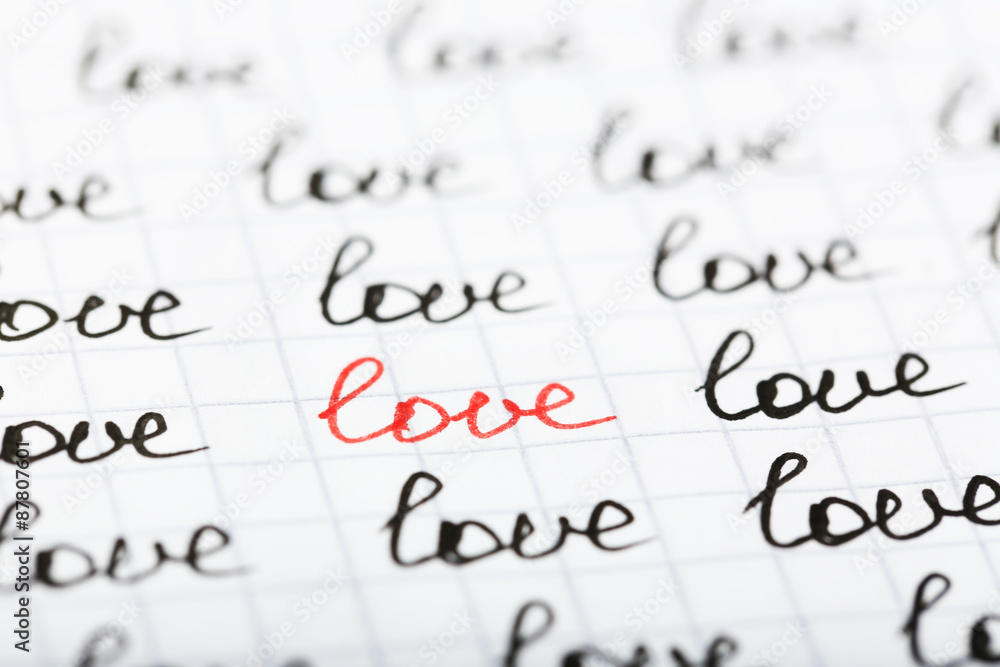 love love love
ove love love
ove love love
ove love love
love love love
love lo